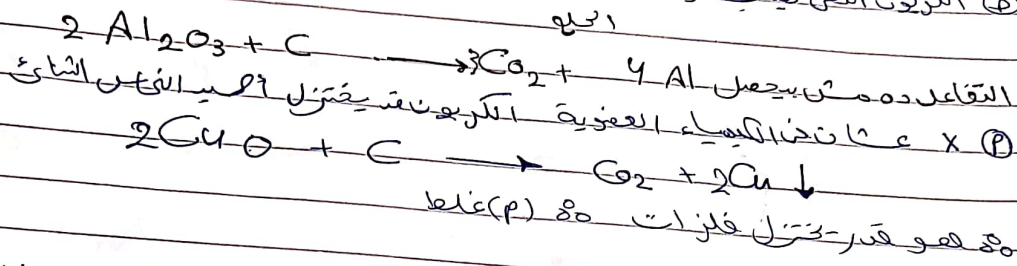 الكربون
الحل
2 Al2O3 + C → 3CO2 + 4 Al التفاعل ده مش بيحصل
P X عشان في الكيمياء العضوية الكربون قد يختزل أكسيد النحاس الثنائي
2CuO + C → CO2 + 2Cu ↓
∴ هو قدر يختزل فلزات ∴ (P) غلط